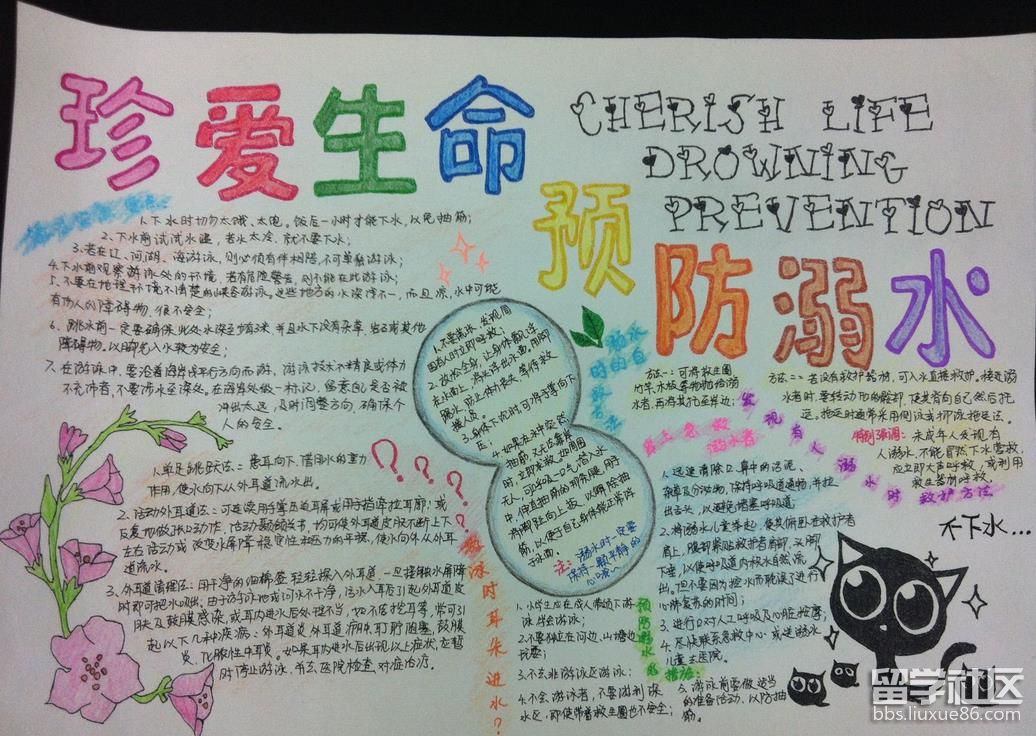 珍爱生命
CHERISH LIFE
DROWNING
PREVENTION
预防溺水
1.下水时切勿太饿、太饱。饭后一小时才能下水，以免抽筋；
2.下水前试试水温，若水太冷，就不要下水；
3.若在江、河、湖、海游泳，则必须有伴相陪，不可单独游泳；
4.下水前观察游泳处的环境，若有危险警告，则不能在此游泳；
5.不要在地理环境不清楚的峡谷游泳。这些地方的水深浅不一，而且凉，水中可能
有伤人的障碍物，很不安全；
6.跳水前一定要确保此处水深至少有3米，并且水下没有杂草、岩石或其他
障碍物。以脚先入水较为安全；
7.在游泳中，要沿着海岸线平行方向而游，游泳技术不精良或体力
不充沛者，不要涉水至深处。在海岸处做一标记，留意自己是否被
冲出太远，及时调整方向，确保个
人的安全。
1.单足跳跃法：患耳向下，借用水的重力
作用，使水向下从外耳道流出。
2.活动外耳道法：可连续用手掌压迫耳屏或用手指牵拉耳郭；或
反复地做张口动作，活动颞颌关节，均可使外耳道皮肤不断上下
左右活动或改变水屏障稳定性和压力的平衡，使水向外从外耳
道流出。
3.外耳道清理法：用干净的细棉签轻轻探入外耳道，一旦接触水屏障
时即可把水吸出。由于游泳池或河水不干净，污水入耳后引起外耳道皮
肤及鼓膜感染，或耳内进水后处理不当，如不洁挖耳等，常可引
起以下几种疾病：外耳道炎、外耳道疖肿、耵聍阻塞、鼓膜
炎、化脓性中耳炎。如果耳内进水后出现以上症状，应暂
时停止游泳，书去医院检查，对症治疗。
???
游泳时耳朵进水?
溺水
时的自
救方法
1.不要慌张，发现周
围有人时立即呼救；
2.放松全身，让身体飘浮
在水面上，将头浮出水面，用脚
踢水，防止体力丧失，等待救
援人员。
3.身体下沉时，可将手掌向下
压；
4.如果在水中突然
抽筋，又无法靠岸
时，立即求救。如周围
无人，可深吸一口气潜入水
中，伸直抽筋的那条腿，用手
将脚趾向上扳，以解除抽
筋。
注：溺水时一定要
保持一颗平静的
心哦~
方法一：可将救生圈、
竹竿、木板等物抛给溺
水者，再将其拖至岸边；
方法二：若没有救护器材，可入水直接救护。接近溺
水者时，要转动他的髋部，使其背向自己然后拖
运。拖运时通常采用侧泳或仰泳拖运法。
特别强调：未成年人发现有
人溺水，不能冒然下水营救，
应立即大声呼救，或利用
救生器材呼救。
发现有人溺水时救护方法
岸上急救溺水者
1.迅速清除口、鼻中的污泥、
杂草及分泌物，保持呼吸道通畅，并拉
出舌头，以避免堵塞呼吸道；
2.将溺水儿童举起，使其俯卧在救护者
肩上，腹部紧贴救护者肩部，头脚
下垂，以使呼吸道内积水自然流
出。但不要因为控水而耽误了进行
心肺复苏的时间；
3.进行口对人工呼吸及心脏按摩；
4.尽快联系急救中心或送溺水
儿童去医院。
预防溺水的措施：
1.小学生应在成人带领下游
泳，学会游泳；
2.不要独自在河边、山塘边
玩耍；
3.不去非游泳区游泳；
4.不会游泳者，不要游到深
水区，即使带着救生圈也不安全；
5.游泳前要做适当
的准备活动，以防抽
筋。
不下水…
留学社区
bbs.liuxue86.com